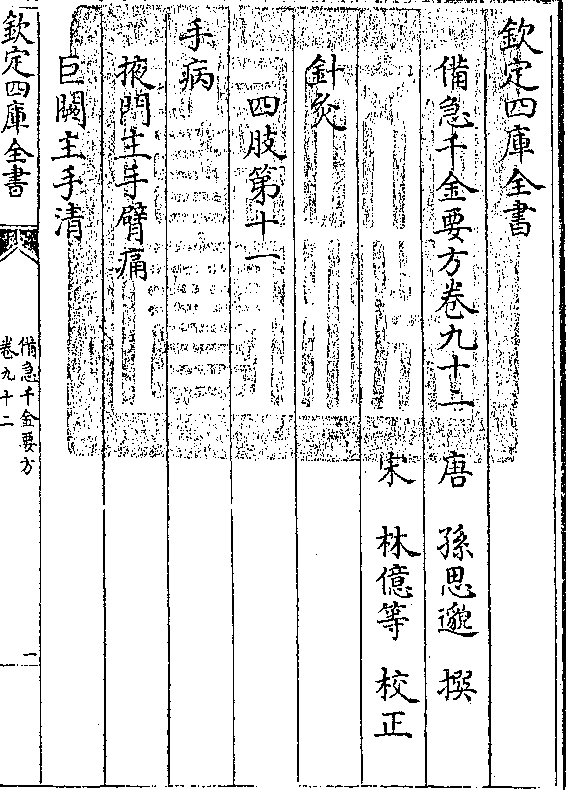 欽定四庫全書
備急千金要方卷九十二
唐 孫思邈 撰
宋 林億等 校正
針灸
四肢第十一
手病
掖門主手臂痛
巨闕主手清
欽定四庫全書
備急千金要方
卷九十二
一